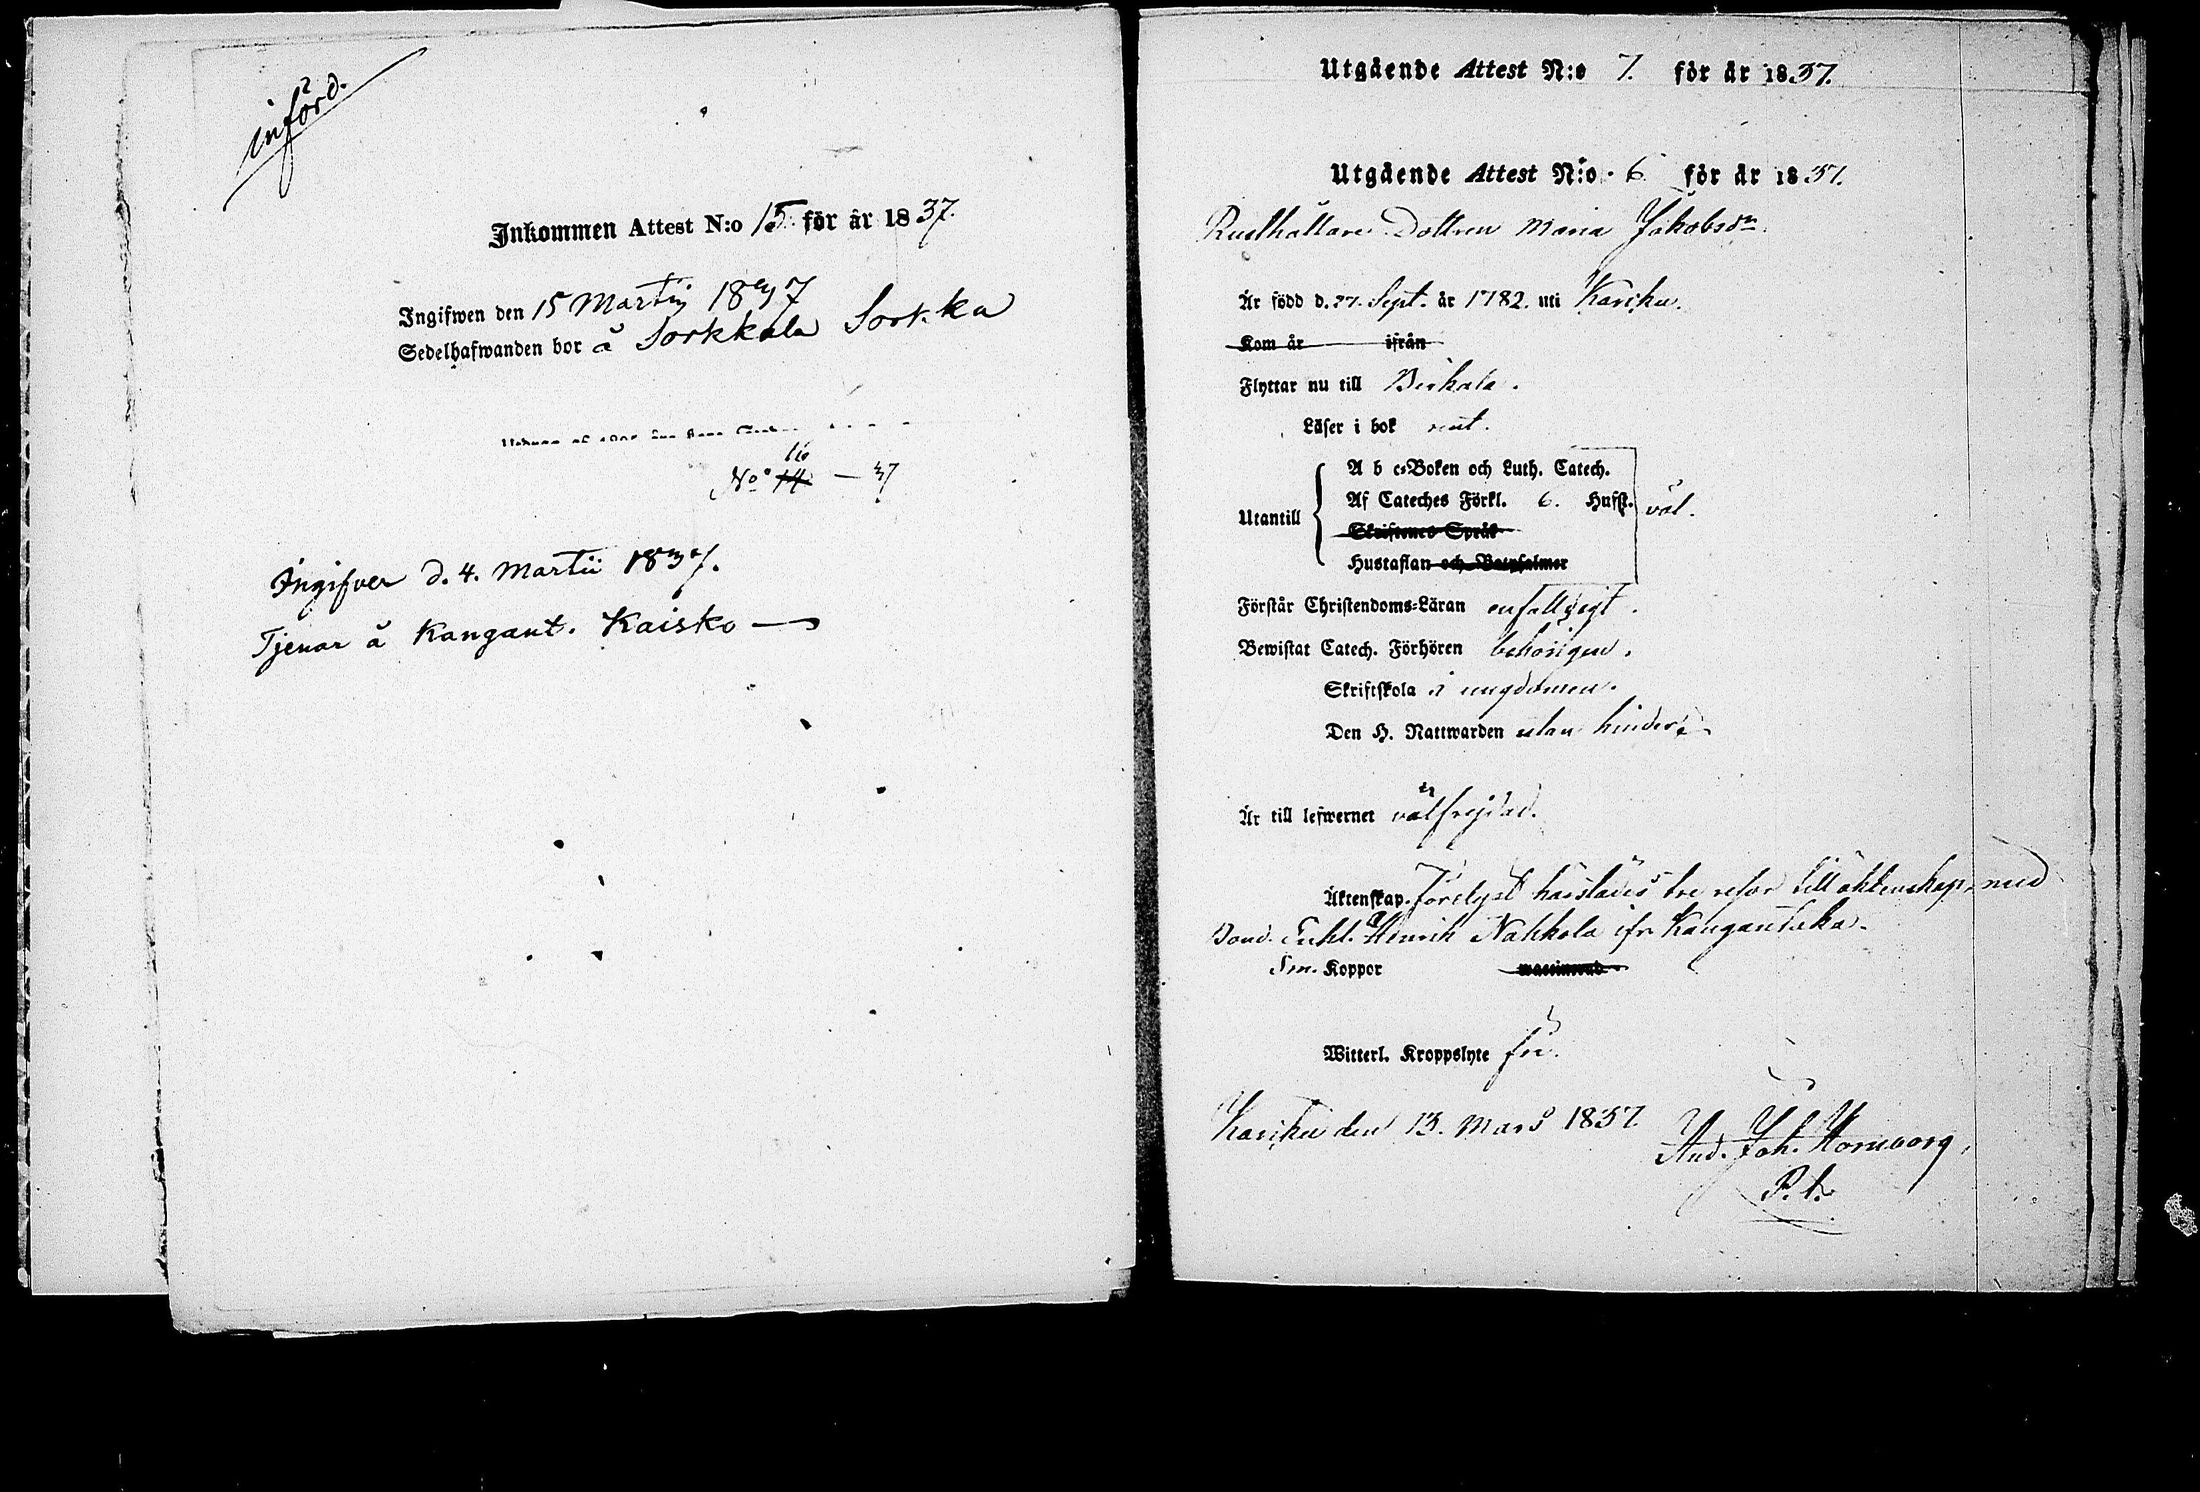 införd.
Inkommen Attest N:o 15. för år 1837.
Ingifwen den 15 Martij 1837
Sedelhafwanden bor å Sorkkala Sorkka
No 16 14 — 37
Ingifven d. 4. Martii 1837.
Tjenar å Kangant. Kaisko
Utgående Attest N:o 7. för år 1837.
Utgående Attest N:o 6 för år 1837.
Rusthållare Dottren Maria Jakobsdr
Är född d. 27. Sept. år 1782. uti Karcku.
Kom år ifrån
Flyttar nu till Birkala.
Läser i bok rent.
A b c-Boken och Luth. Catech.
Af Cateches Förkl. 6. Hufst. väl.
Utantill
Skriftenes Språk
Hustaflan och Botpsalmer
Förstår Christendoms-Läran enfalldigt.
Bewistat Catech. Förhören behörigen.
Skriftskola i ungdomen.
Den H. Nattwarden utan hinder.
Är till lefwernet är välfrejdad.
Äktenskap. Förelyst härstädes tre resor till äktenskap med
Bond. Enkl. Henrik Nahkola ifr. Kangantaka.
Sm. Koppor vaccinerad
Witterl. Kroppslyte fri.
Karcku den 13. Mars 1837.
And. Joh. Hornborg,
P. l.